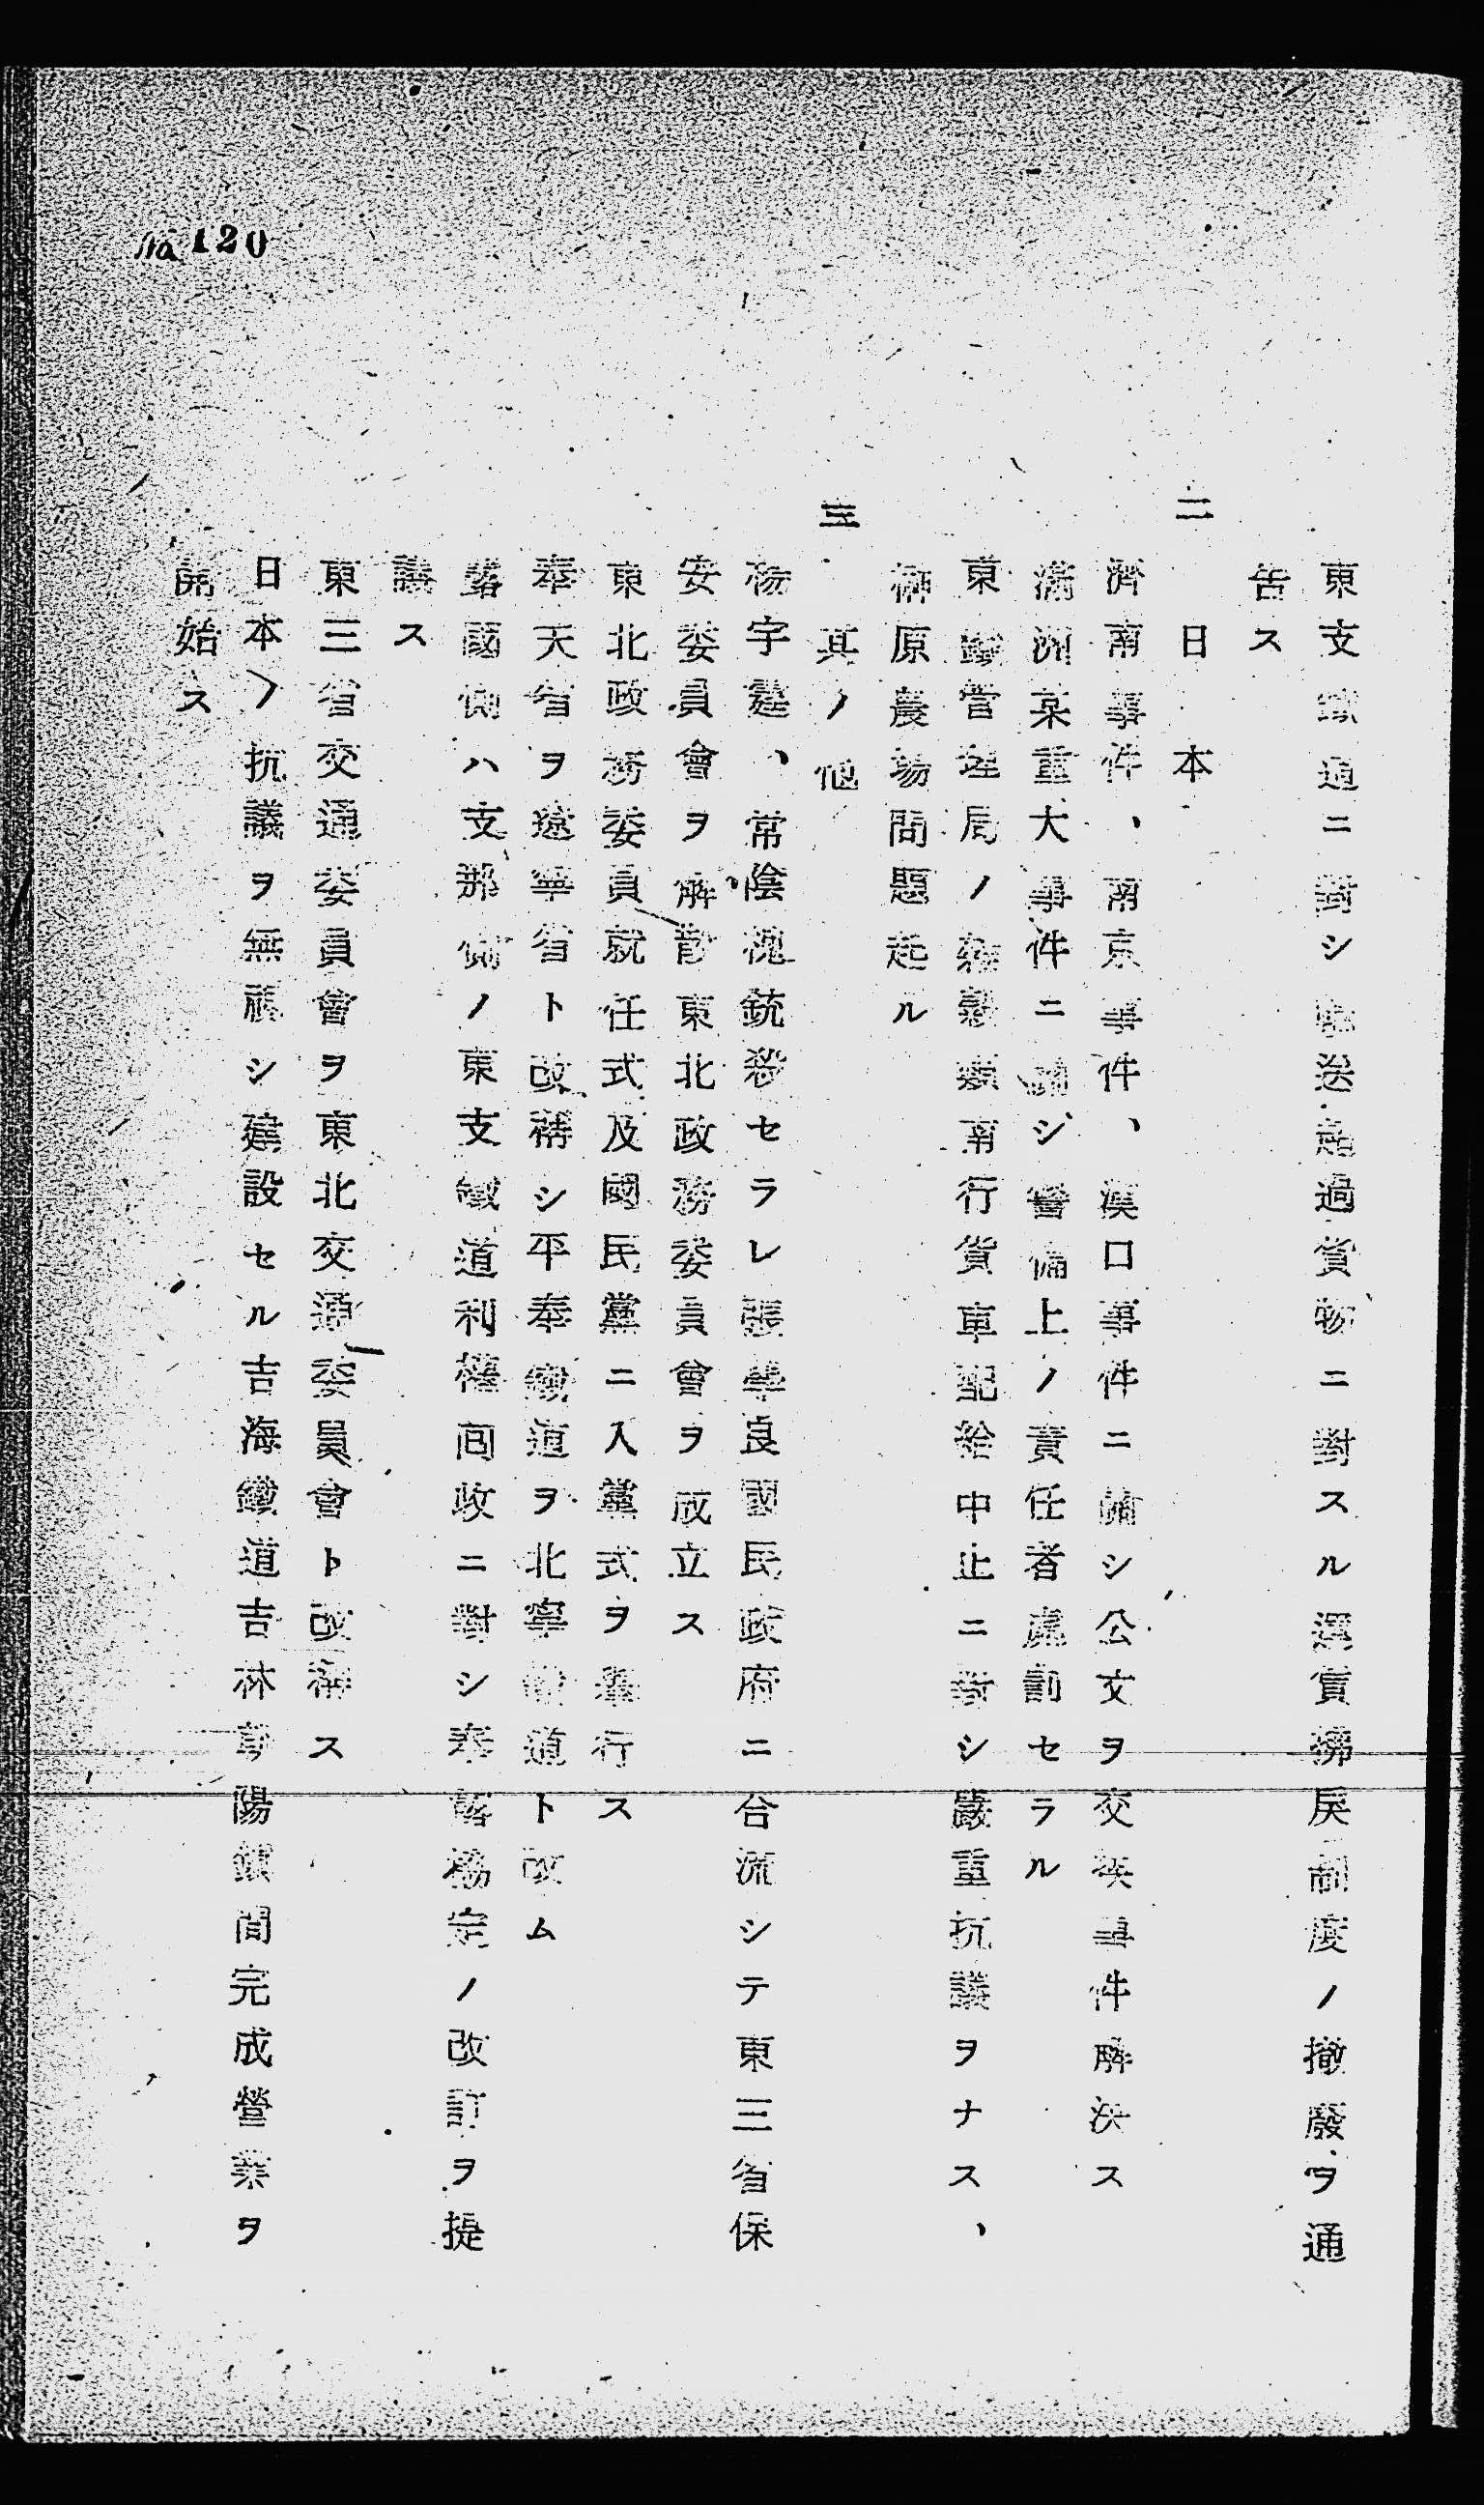 東支鐵道ニ對シ輸送超過貨物ニ對スル運賃拂戾制度ノ撤廢ヲ通
告ス
二 日本
濟南事件、南京事件、漢口事件ニ關シ公文ヲ交換事件解決ス
滿洲某重大事件ニ關シ警備上ノ責任者處罰セラル
東鐵管理局ノ雜穀類南行貨車配給中止ニ對シ嚴重抗議ヲナス、
榊原農場問題起ル
三 其ノ他
楊宇霆、常陰槐銃殺セラレ張學良國民政府ニ合流シテ東三省保
安委員會ヲ解散東北政務委員會ヲ成立ス
東北政務委員就任式及國民黨ニ入黨式ヲ擧行ス
奉天省ヲ遼寧省ト改稱シ平奉鐵道ヲ北寧鐵道ト改ム
露國側ハ支那側ノ東支鐵道利權回收ニ對シ奉露協定ノ改訂ヲ提
議ス
東三省交通委員會ヲ東北交通委員會ト改稱ス
日本ノ抗議ヲ無視シ建設セル吉海鐵道吉林朝陽鎮間完成營業ヲ
開始ス
No 120